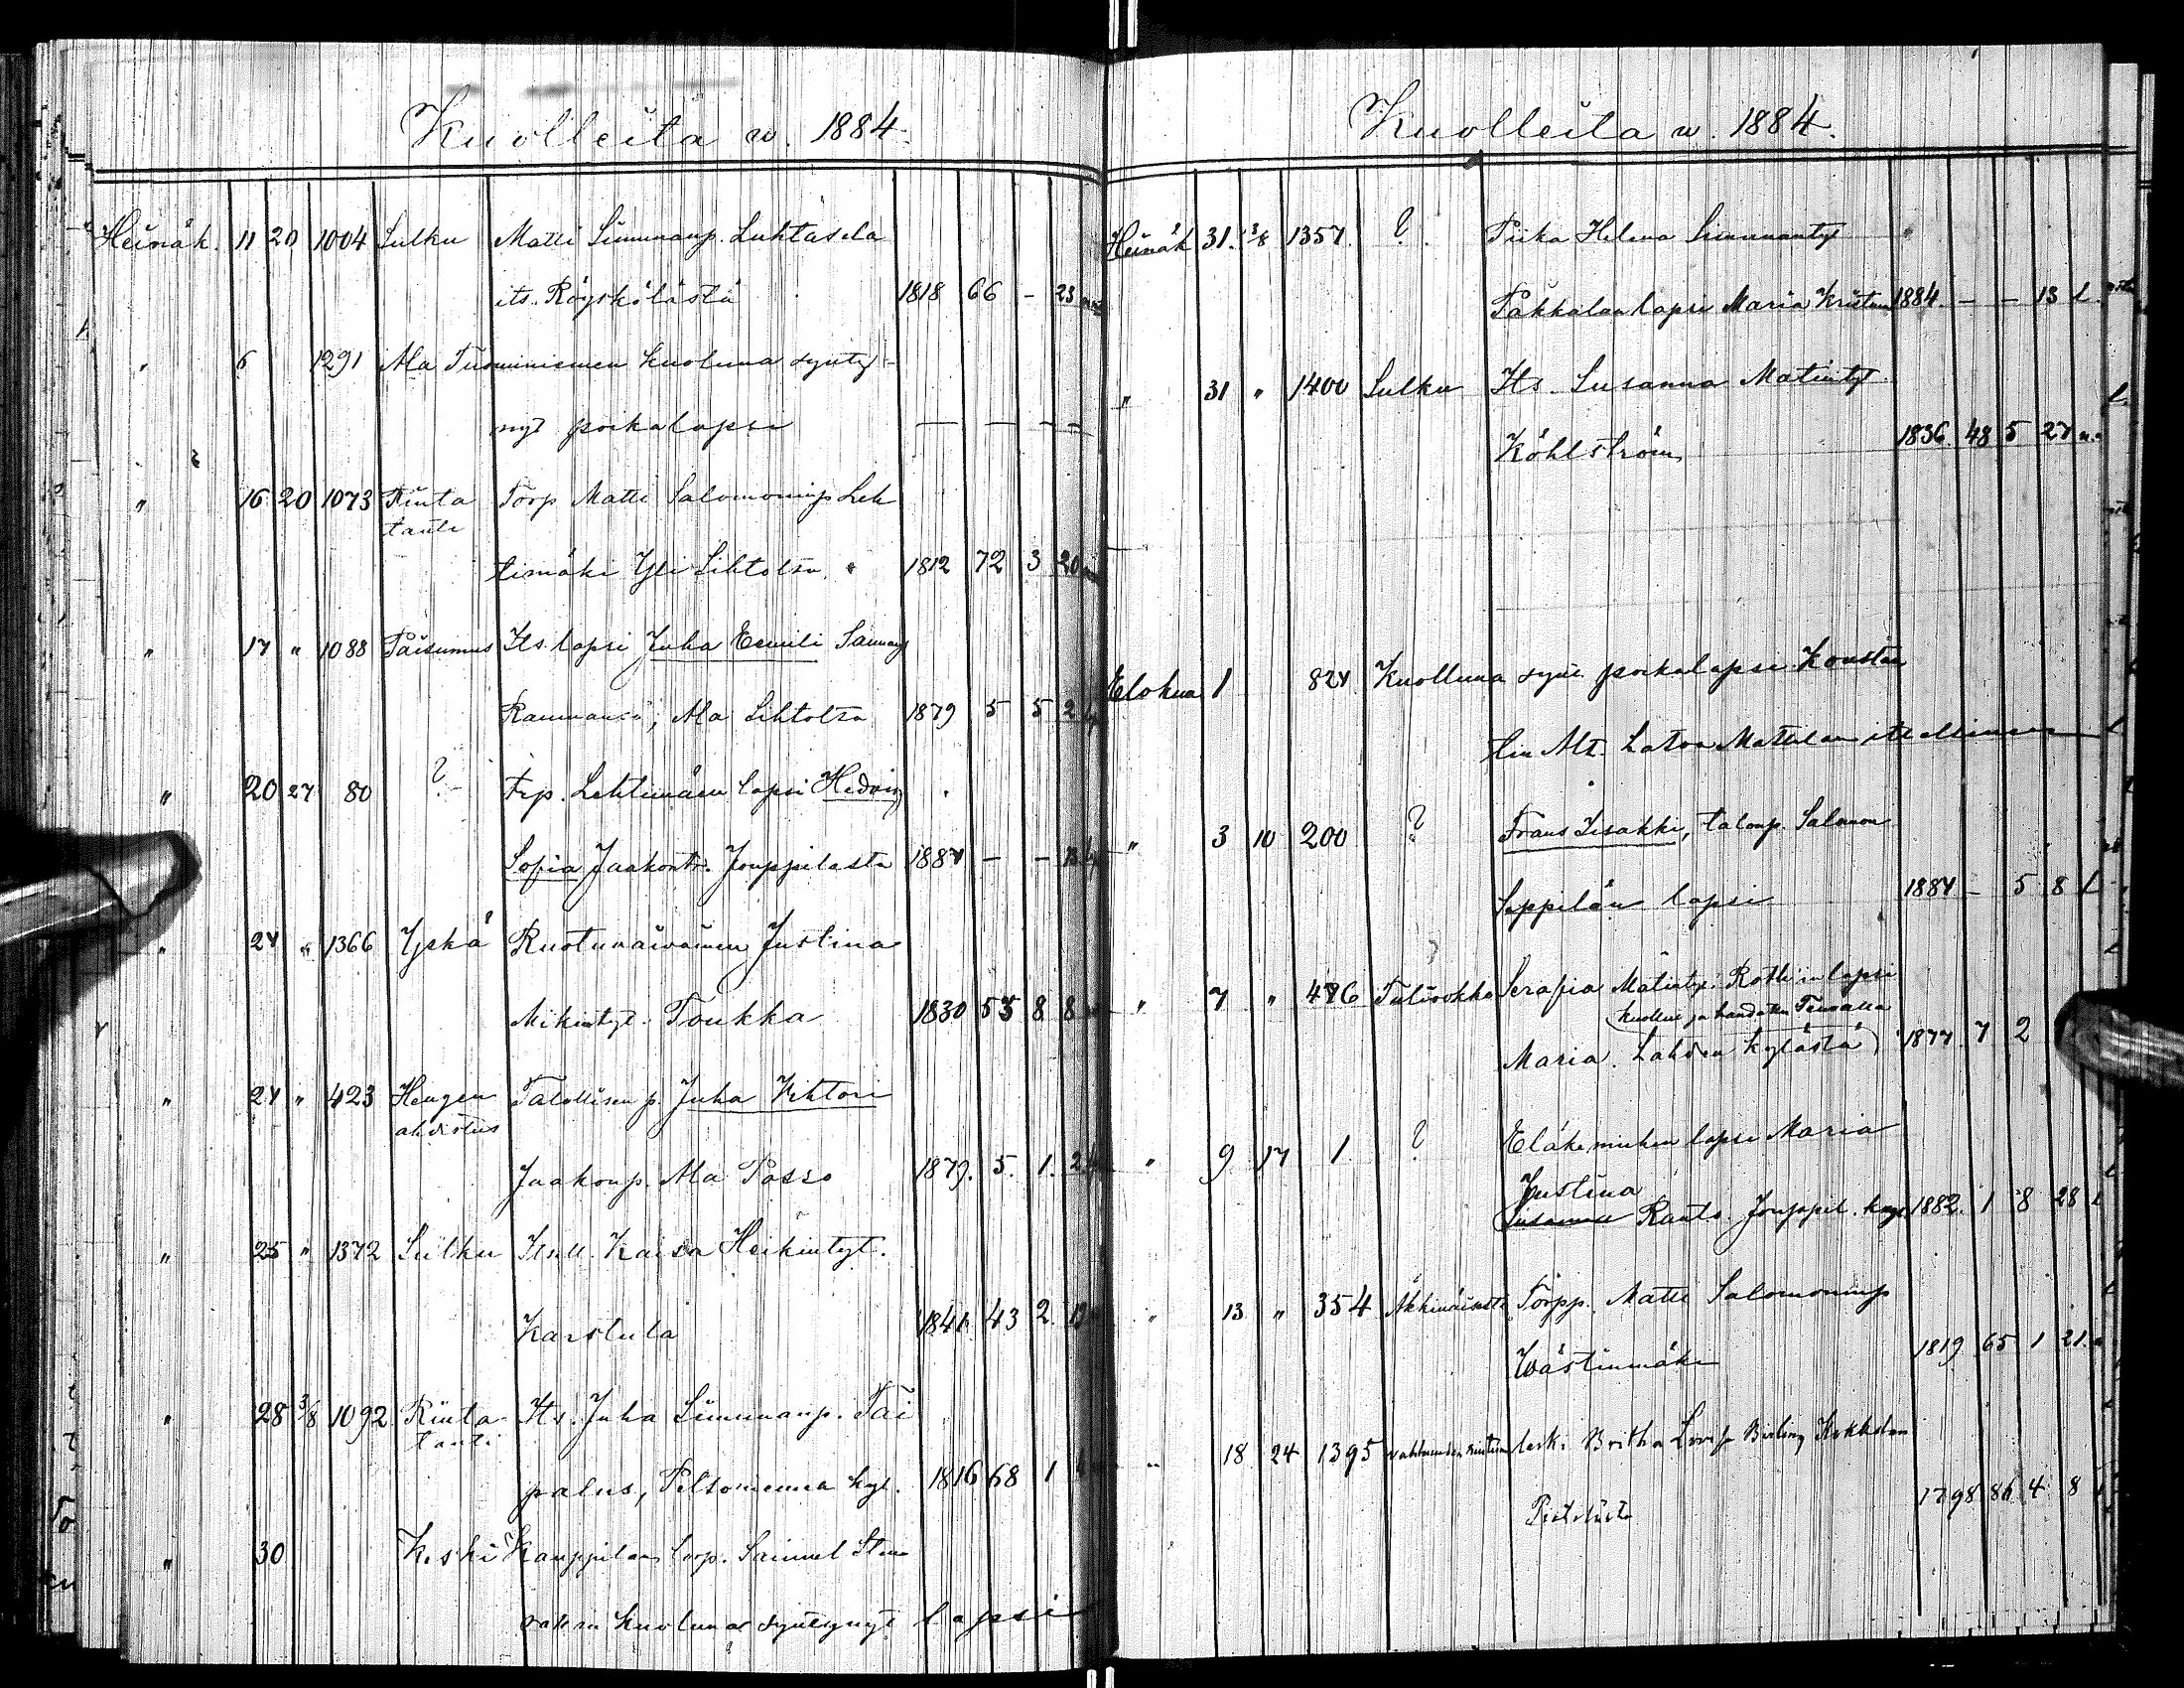 Kuolleita w. 1884.
Heinäk. 11 20 1004 Sulku Matti Simmuanp. Luhtasela
its. Röyskölästä 1818 66 - 23
" 6 1291 Ala Tuominiemen kuoluna synty-
nyt poikalapsi — — — —
" 16 20 1073 Rinta Torp Matti Salomoninp Leh
tauti
timäki Yli Lihtolsa 1812 72 3 20
" 17 " 1088 Paisumus Its. lapsi Juha Eemili
Ala Lihtolsa 1879 5 5 2
" 20 27 80 ? trp. Lehtimäen lapsi Hedvig
Sofia Jaakontr. Jouppilasta 1884 — —
" 24 " 1366 Yskä Ruotuvaivainen Justina
Mikintyt. Toukka 1830 53 8 8
" 24 " 423 Hengen Talollisen p. Juha Vihtori
ahdistus
Jaakonp. Ala Passo 1879. 5. 1.
" 25 " 1372 Sulku Kaisa Heikintyt.
Karstula 1841 43 2.
" 28 3/8 1092 Rinta Its. Juha Simmuanp. Tai
tauti
palus, Peltoniemen kyl. 1816 68 1
" 30 Keski Kauppilan torp. Samuel
kuoluna syntynyt lapsi
Kuolleita w. 1884.
Heinäk 31. 3/8 1357. ? Piika Helena Simmuantyt
Pakkalan lapsi Maria Kristina 1884. — — 13 l.
" 31 " 1400 Sulku Its. Susanna Matintyt.
Köhlström 1836. 48 5 27
Elokuu 1 824 Kuolluna synt. poikalapsi Konstan
tin Alt. Latva Mattilan itsellinen
" 3 10 200 ? Frans Iisakki, talonp. Salomon
Seppilän lapsi 1884 — 5 8 l
" 7 " 476 Tulirokko Serafia Matintyt. lapsi
kuollut ja haudattu
Maria. Lahden kylästä) 1877. 7 2
" 9 17 1 ? Eläkemiehen lapsi Maria
Justina
Susanna Ranto. Jouppil. kyl. 1882. 1 8 28 l
" 13 " 354 Äkkinäisesti Torpp. Matti Salomoninp
Wästinmäki 1819 65 1 21.
" 18 24 1395 leski Britha Lovisa Kokkolan
1798 86 4 8